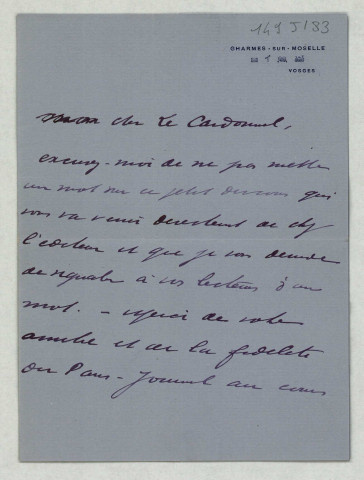 149 J/33
CHARMES-SUR-MOSELLE
VOSGES
mon cher Le Cardonnel,
excusez-moi de ne pas mettre
un mot sur ce petit discours qui
vous va venir directement de chez
l'éditeur et que je vous demande
de signaler à vos lecteurs d'un
mot. - Merci de votre
amitié et de la fidélité
du Paris-Journal au cours